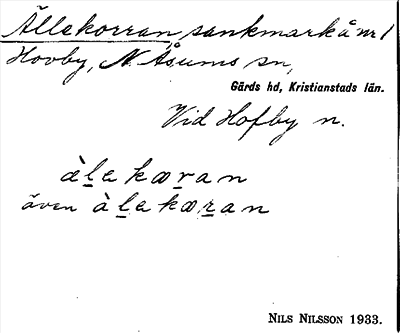 Ällekorran, sankmark å nr 1
Hovby, N. Åsums sn,
Gärds hd, Kristianstads län.
Vid Hofby n.
àlekæran
även àlekæran
NILS NILSSON 1933.